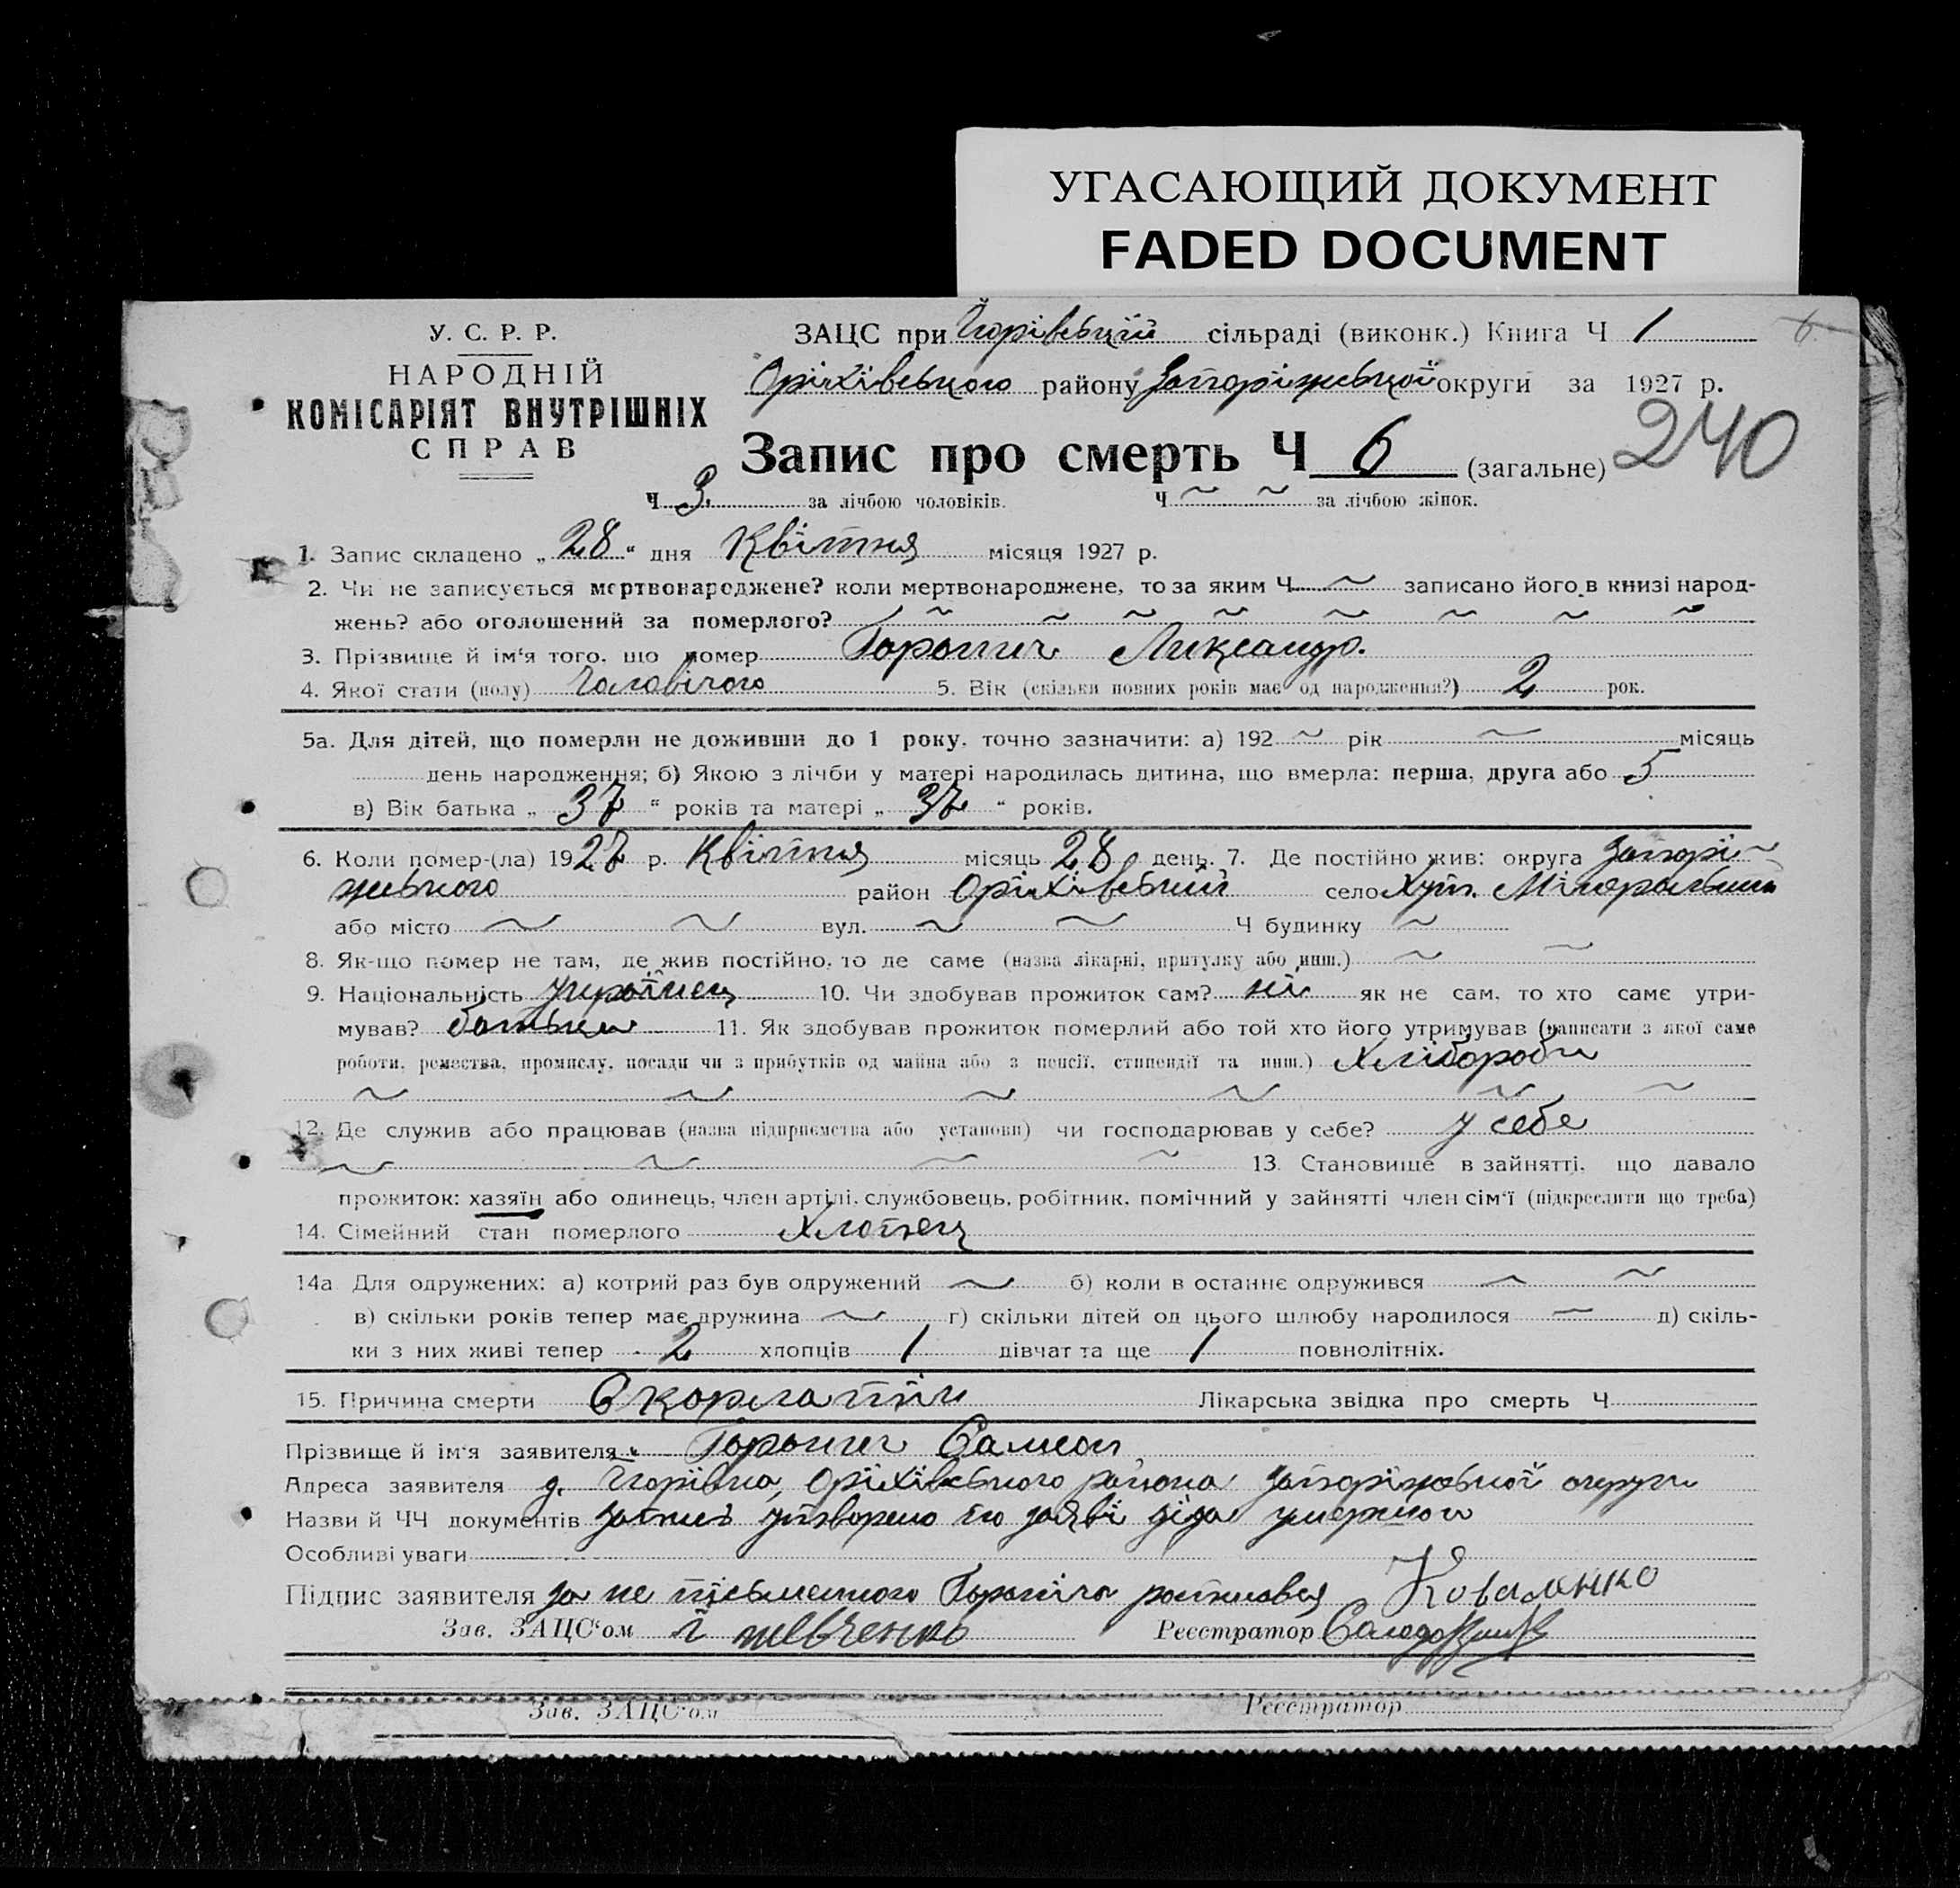 УГАСАЮЩИЙ ДОКУМЕНТ
FADED DOCUMENT
У. С. Р. Р.
НАРОДНІЙ
КОМІСАРІЯТ ВНУТРІШНІХ
СПРАВ
ЗАЦС при сільраді (виконк.) Книга Ч 1
6
Оріхівського району Запоріжської округи за 1927 р.
Запис про смерть Ч 6 (загальне) 240
Ч 3 за лічбою чоловіків. Ч ~ ~ за лічбою жінок.
1. Запис складено „ 28 “ дня Квітня місяця 1927 р.
2. Чи не записується мертвонароджене? коли мертвонароджене, то за яким Ч ~ записано його в книзі народ-
жень? або оголошений за померлого? ~ ~ ~ ~ ~ ~ ~
3. Прізвище й ім‘я того, що помер Александр.
4. Якої стати (полу) Чоловічого 5. Вік (скільки повних років має од народження?) 2 рок.
5а. Для дітей, що померли не доживши до 1 року, точно зазначити: а) 192 ~ рік ~ місяць
день народження; б) Якою з лічби у матері народилась дитина, що вмерла: перша, друга або 5
в) Вік батька „ 37 “ років та матері „ 37 “ років.
6. Коли помер-(ла) 1927 р. Квітня місяць 28 день. 7. Де постійно жив: округа Запорі-
жського район Оріхівський село Хут.
або місто ~ ~ вул. ~ ~ Ч будинку ~
8. Як-що помер не там, де жив постійно, то де саме (назва лікарні, притулку або инш.) ~ ~
9. Національність Українец 10. Чи здобував прожиток сам? ні як не сам, то хто саме утри-
мував? батьки 11. Як здобував прожиток померлий або той хто його утримував (написати з якої саме
роботи, ремества, промислу, посади чи з прибутків од майна або з пенсії, стипендії та инш.) Хлібороби
~ ~ ~ ~ ~ ~
12. Де служив або працював (назва підприємства або установи) чи господарював у себе? у себе
~ ~ ~ ~ 13. Становище в зайнятті, що давало
прожиток: хазяїн або одинець, член артілі, службовець, робітник, помічний у зайнятті член сім‘ї (підкреслити що треба)
14. Сімейний стан померлого Хлопец
14а Для одружених: а) котрий раз був одружений ~ б) коли в останнє одружився ~ ~
в) скільки років тепер має дружина ~ г) скільки дітей од цього шлюбу народилося ~ д) скіль-
ки з них живі тепер 2 хлопців 1 дівчат та ще 1 повнолітніх.
15. Причина смерти Скорлатін Лікарська звідка про смерть Ч
Прізвище й ім‘я заявителя
Адреса заявителя Оріхівського района Запоріжської округи
Назви й ЧЧ документів запись утворено по заяві діда
Особливі уваги
Підпис заявителя за не письменного Коваленко
Зав. ЗАЦС‘ом Шевченко Реєстратор
Зав. ЗАЦС‘ом Реєстратор